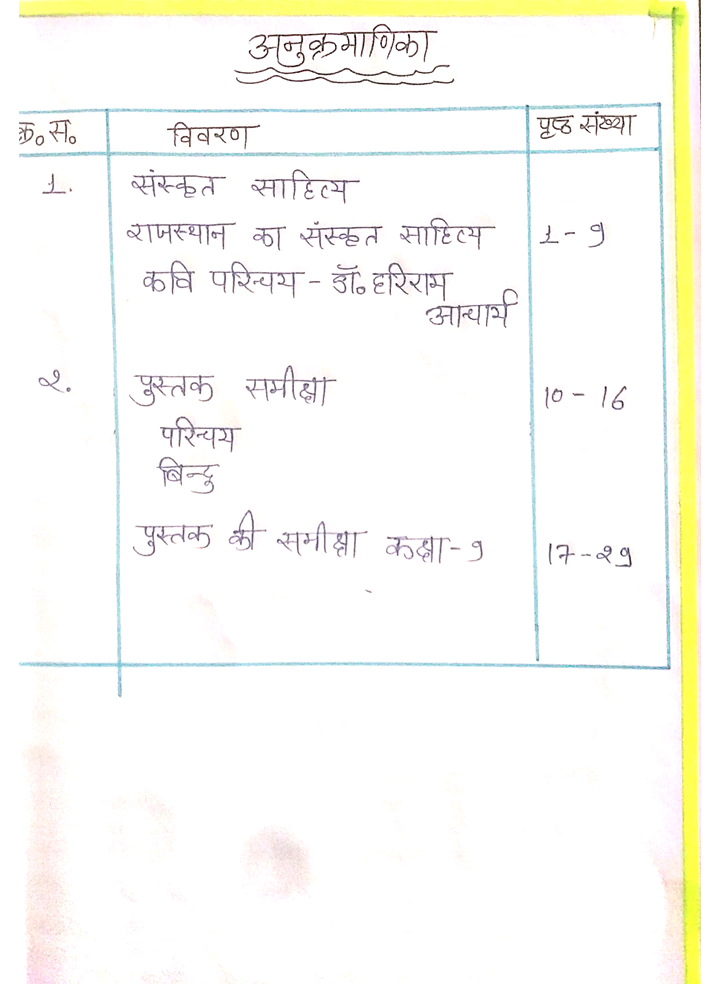 अनुक्रमाणिका
क्र॰स॰ विवरण पृष्ठ संख्या
1. संस्कृत साहित्य
राजस्थान का संस्कृत साहित्य 1-9
कवि परिचय - डॉ॰ हरिराम
आचार्य
२. पुस्तक समीक्षा 10-16
परिचय
बिन्दु
पुस्तक की समीक्षा कक्षा-9 17-२9